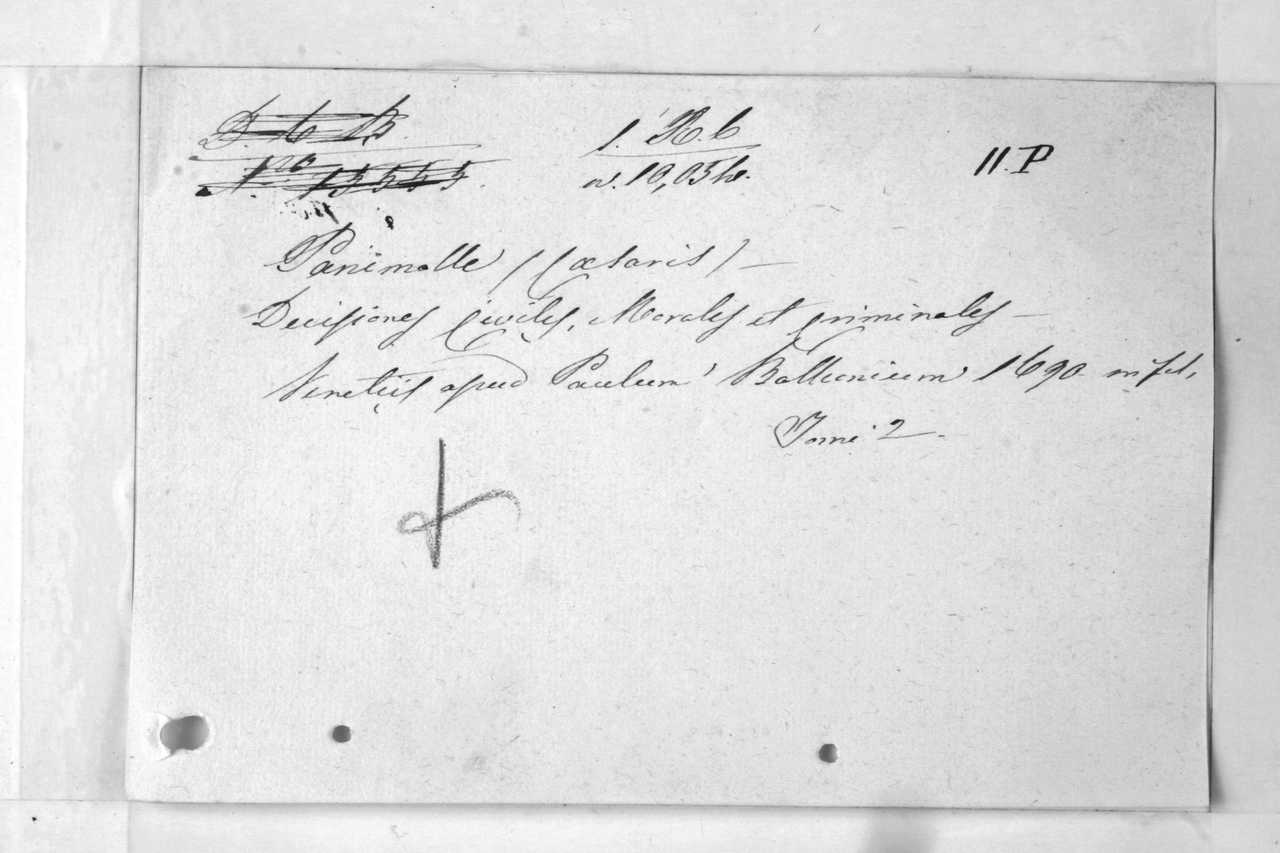 D. 6 B.
1. H. 6
11. P
No. 13545.
Panimolle / Cæsaris / —
Decisiones Civiles, Morales et Criminales —
Venetiis apud Paulum Balleonium 1690. in fol.
Tomi 2 —